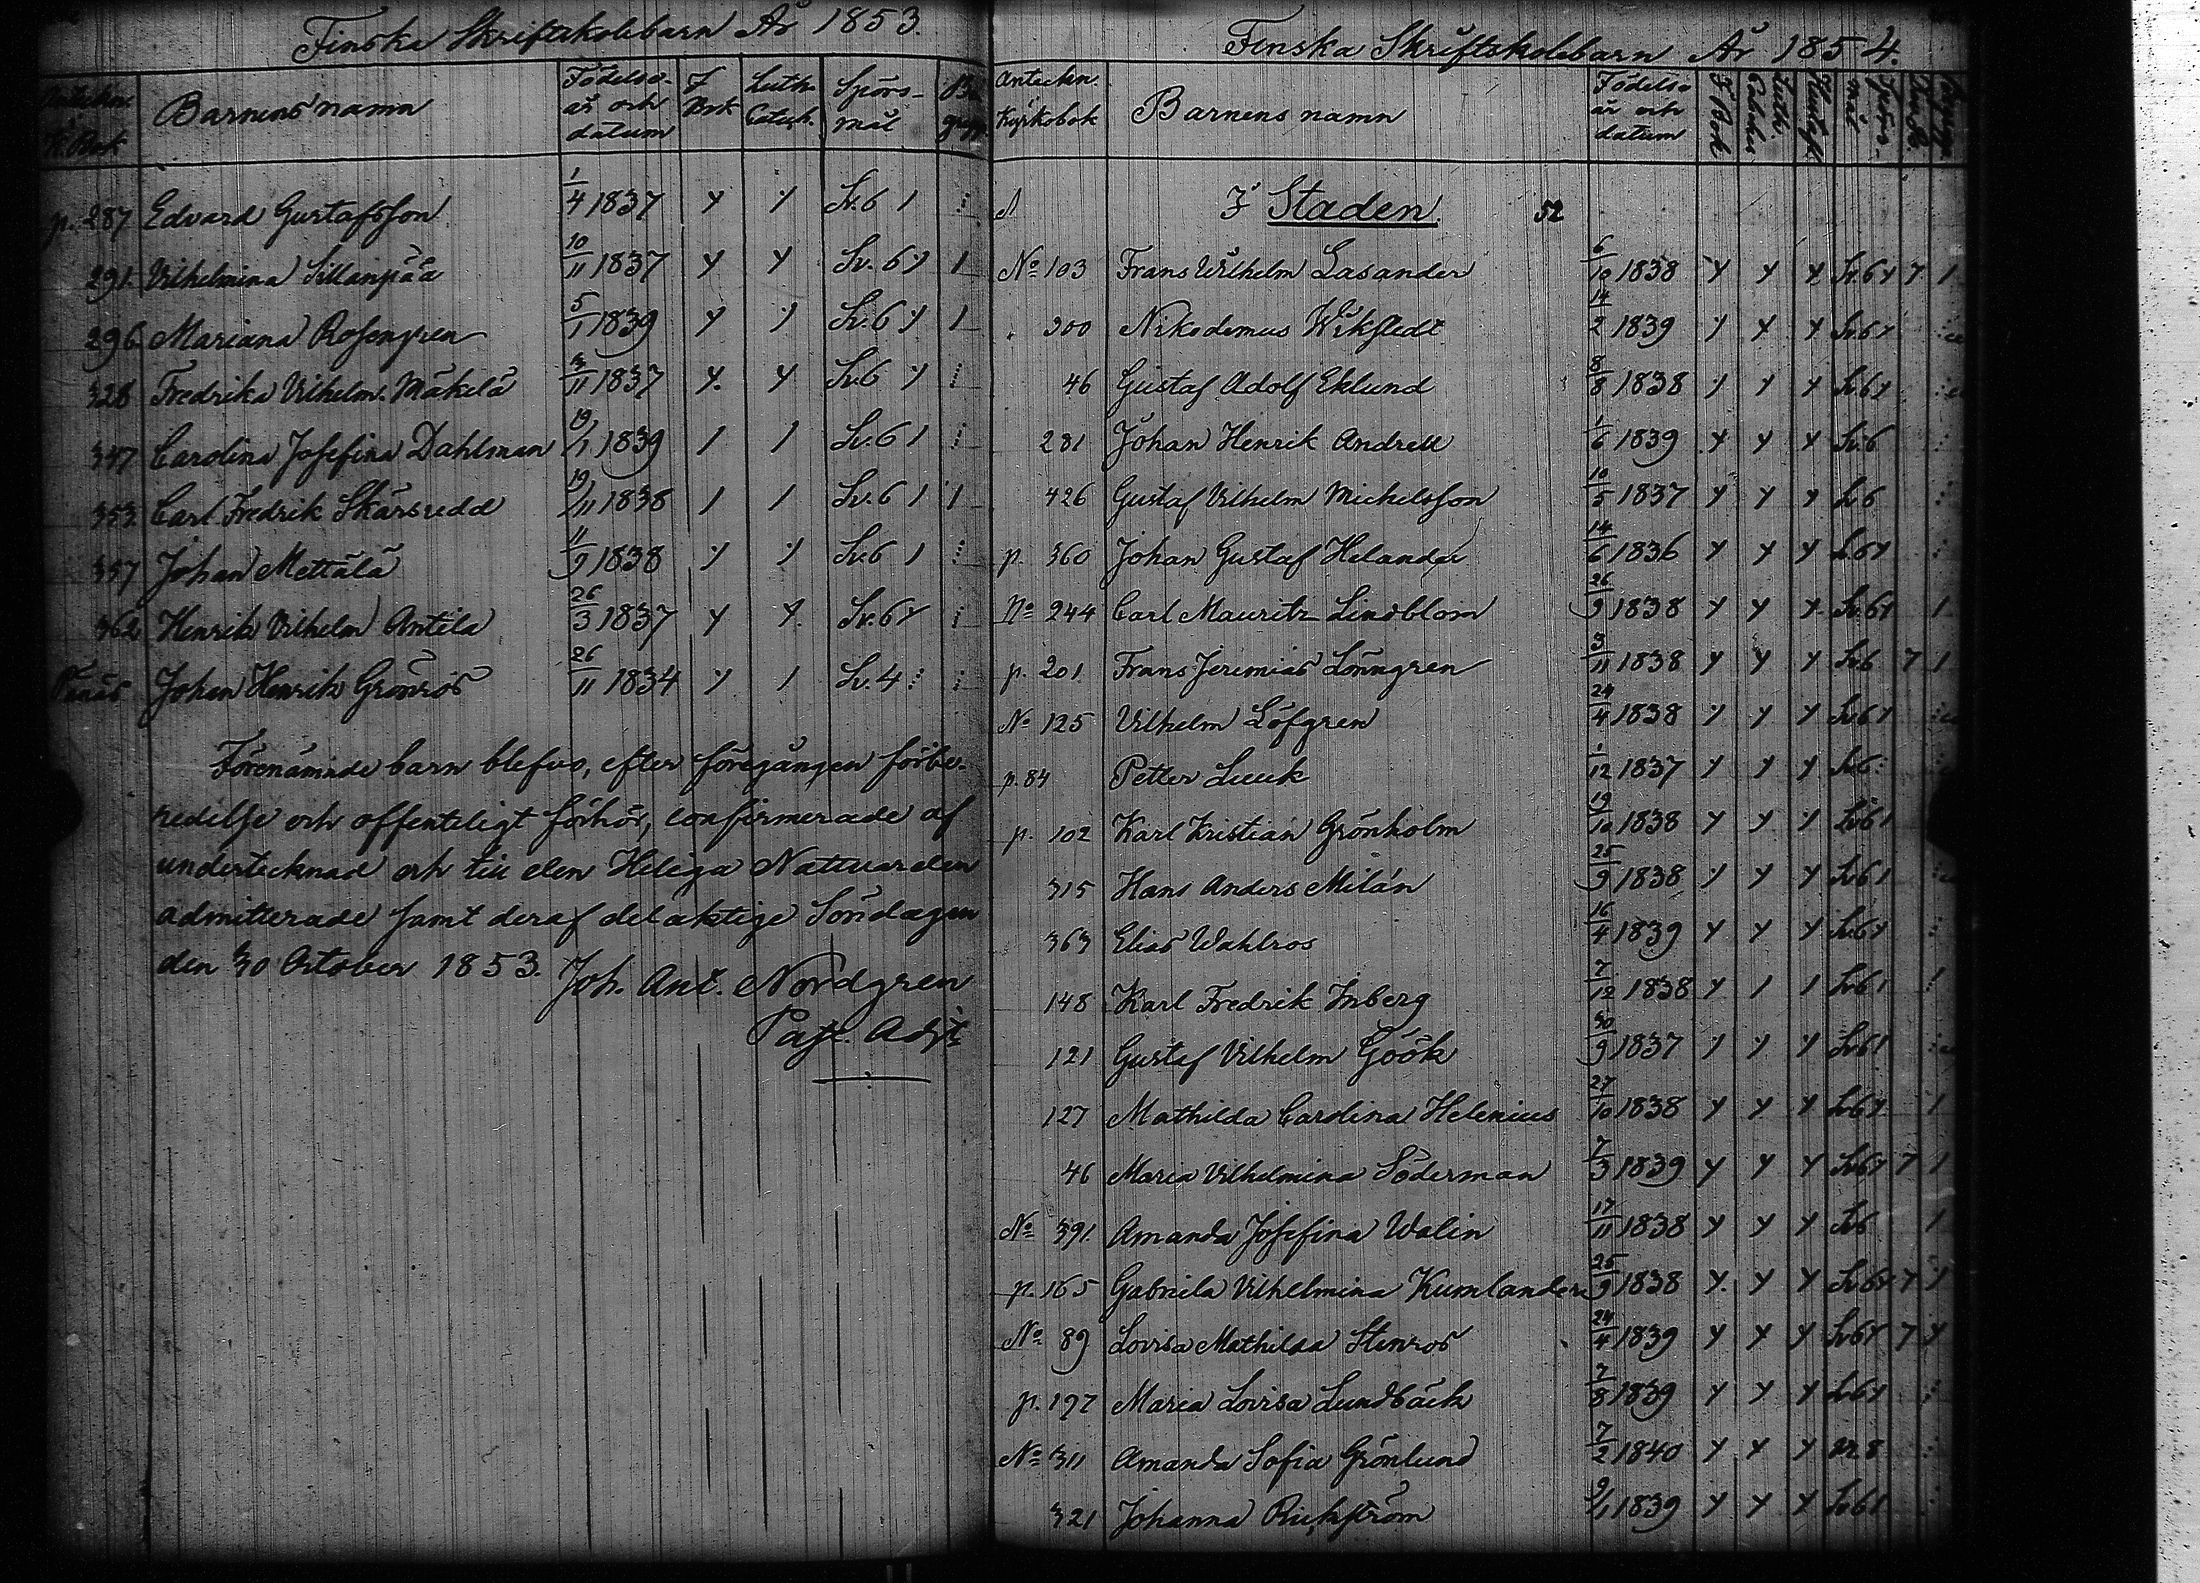 Finska Skriftskolebarn År 1853.
Anteckn. i K. Bok | Barnens namn | Födelse- år och datum | I Bok | Luth. Catech. | Spörs- mål | Be- grepp
p. 287 Edvard Gustafsson 1/4 1837 Sv. 6
291. Vilhelmina Sillanpää 10/11 1837 Sv. 6
296 Mariana Rosengren 5/1 1839 Sv. 6
328 Fredrika Vilhelm. Mäkelä 3/11 1837 Sv. 6
347 Carolina Josefina Dahlman 19/1 1839 Sv. 6
353. Carl Fredrik Skärsredd 19/11 1838 Sv. 6
357 Johan Mettälä 11/9 1838 Sv. 6
362 Henrik Vilhelm Antila 26/3 1837 Sv. 6
Johan Henrik Grönros 26/11 1834 Sv. 4
Förenämnde barn blefvo, efter föregången förbe-
redelse och offenteligt förhör, confirmerade af
undertecknad och till den Heliga Nattvarden
admitterade samt deraf delaktige Söndagen
den 30 October 1853. Joh. Ant. Nordgren
Past. Adj:t
Finska Skriftskolebarn År 1854.
Anteckn. Kyrkobok | Barnens namn | Födelse- år och datum | I Bok | Luth. Catech. | Hustafl. | Spörs- mål | Begrepp
I Staden. 52
No 103 Frans Wilhelm Lasander 6/10 1838 Sv. 6
200 Nikodemus Wikstedt 14/2 1839 Sv. 6
46 Gustaf Adolf Eklund 8/8 1838 Sv. 6
281 Johan Henrik Andrell 1/6 1839 Sv. 6
426 Gustaf Vilhelm Michelsson 10/5 1837 Sv. 6
p. 360 Johan Gustaf Helander 14/6 1836 Sv. 6
No 244 Carl Mauritz Lindblom 26/9 1838 Sv. 6
p. 201 Frans Jeremias Lönngren 3/11 1838 Sv. 6
No 125 Vilhelm Löfgren 24/4 1838 Sv. 6
p. 84 Petter Luuk 1/12 1837 Sv. 6
p. 102 Karl Kristian Grönholm 19/10 1838 Sv. 6
315 Hans Anders Milán 25/9 1838 Sv. 6
363 Elias Wahlros 16/4 1839 Sv. 6
148 Karl Fredrik Inberg 7/12 1838 Sv. 6
121 Gustaf Vilhelm Göök 30/9 1837 Sv. 6
127 Mathilda Carolina Helenius 27/10 1838 Sv. 6
46 Maria Vilhelmina Söderman 7/3 1839 Sv. 6
No 391. Amanda Josefina Walin 17/11 1838 Sv. 6
p. 165 Gabriela Vilhelmina Kumlander 25/9 1838 Sv. 6
No 89 Lovisa Mathilda Stenros 24/4 1839 Sv. 6
p. 197 Maria Lovisa Lundbäck 7/8 1839 Sv. 6
No 311 Amanda Sofia Grönlund 7/2 1840
321 Johanna Rickström 9/1 1839 Sv. 6